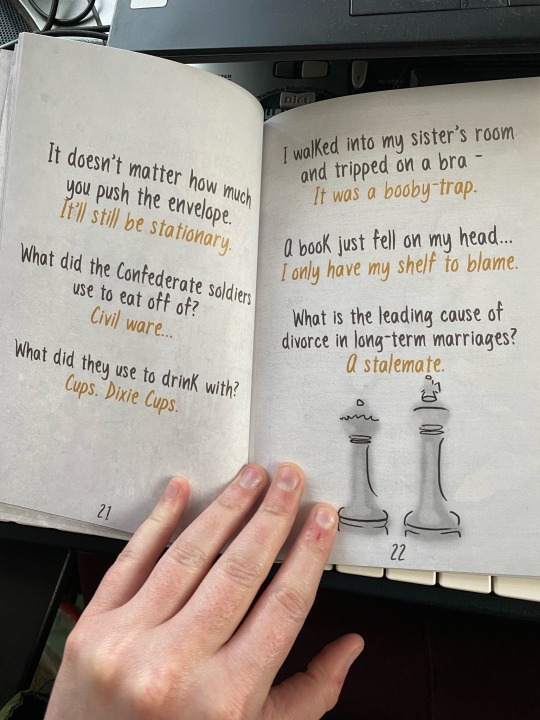 It doesn't matter how much
you push the envelope.
It'll still be stationary.
What did the Confederate soldiers
use to eat off of?
Civil ware...
What did they use to drink with?
Cups. Dixie Cups.
21
I walked into my sister's room
and tripped on a bra -
It was a booby-trap.
A book just fell on my head...
I only have my shelf to blame.
What is the leading cause of
divorce in long-term marriages?
A stalemate.
22